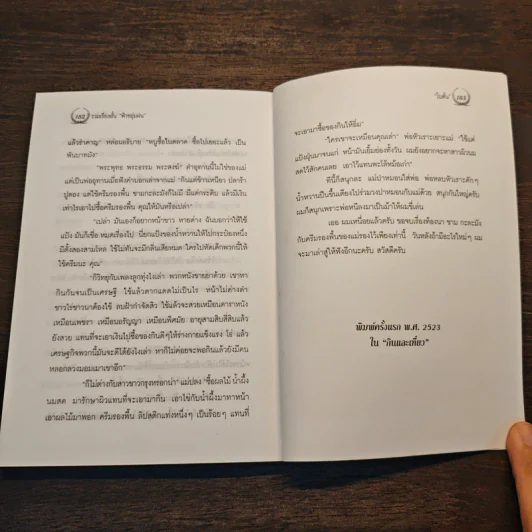 182 รวมเรื่องสั้น "คึกชุ่มฝน"
แล้วรำคาญ" หล่อนอธิบาย "หนูซื้อในตลาด ซื้อไปเยอะแล้ว เป็น
พันบาทมัง"
"พระพุทธ พระธรรม พระสงฆ์" คำอุทานนี้ไม่ใช่ของแม่
แต่เป็นพ่ออุทานเมื่อฟังคำบอกเล่าจากแม่ "กินแต่ข้าวเหนียว ปลาร้า
ปูดอง แต่ใช้ครีมรองพื้น ชามกะละมังก็ไม่มี มีแต่กระติบ แล้วมีเงิน
เท่าไรเอาไปซื้อครีมรองพื้น คุณให้มันหรือเปล่า"
"เปล่า มันเองก็อยากหน้าขาว ทายด่าง ฉันบอกว่าให้ใช้
แป้ง มันก็เชื่อ หมดเรื่องไป นี่ยกแป้งของน้ำหวานให้ไปกระป๋องหนึ่ง
มีตั้งสองสามโหล ใช้ไม่ทันจะมีกลิ่นเสียหมด ใครไปหัดเด็กพวกนี้ให้
ใช้ครีมนะ คุณ"
"ก็วิทยุกับเพลงลูกทุ่งไงเล่า พวกหนังขายยาด้วย เขาหา
กินกันจนเป็นเศรษฐี ใช้แล้วตากแดดไม่เป็นไร หน้าไม่ด่างดำ
ชาวไร่ชาวนาต้องใช้ ลบฝ้ากำจัดสิว ใช้แล้วจะสวยเหมือนดาราหนัง
เหมือนเพชรา เหมือนอรัญญา เหมือนพิศมัย อายุสามสิบสี่สิบแล้ว
ยังสวย แทนที่จะเอาเงินไปซื้อของกินดีๆให้ร่างกายแข็งแรง ไฮ่ แล้ว
เศรษฐกิจพวกนี้มันจะดีได้ยังไงเล่า หาก็ไม่ค่อยจะพอกินแล้วยังมีคน
หลอกลวงมอมเมาเขาอีก"
"ก็ไม่ต่างกับสาวชาวกรุงหรอกน่า" แม่ปลง "ซื้อผลไม้ น้ำผึ้ง
นมสด มารักษาผิวแทนที่จะเอามากิน เอาไข่กับน้ำผึ้งมาทาหน้า
เอาผลไม้มาพอก ครีมรองพื้น ลิปสติกแท่งหนึ่งๆ เป็นร้อยๆ แทนที่
"ใบตั๋น" 183
จะเอามาซื้อของกินให้อิ่ม"
"ใครเขาจะเหมือนคุณเล่า" พ่อหัวเราะเยาะแม่ "ใช้แต่
แป้งฝุ่นมาจนแก่ หน้ามันเยิ้มย่องทั้งวัน ผมยังอยากจะหาสาวผิวนม
สดไว้สักคนเลย เอาไว้แทนพระโต้หม้อเก่า"
ตีนี้ก็สนุกละ แม่เป่าหมอนใส่พ่อ พ่อหลบหัวเราะคักๆ
น้ำหวานเป็นขึ้นเตียงไปร่วมวงปาหมอนกับแม่ด้วย สนุกกันใหญ่ครับ
ผมก็สนุกเพราะพ่อหนีลงมาเป็นม้าให้ผมขี่เล่น
เออ ผมเหนื่อยแล้วครับ ขอจบเรื่องท้องนา ชาม กะละมัง
กับครีมรองพื้นของแม่รองไว้เพียงเท่านี้ วันหลังถ้ามีอะไรใหม่ๆ ผม
จะมาเล่าสู่ให้ฟังอีกนะครับ สวัสดีครับ
พิมพ์ครั้งแรก พ.ศ. 2523
ใน "กินและเที่ยว"